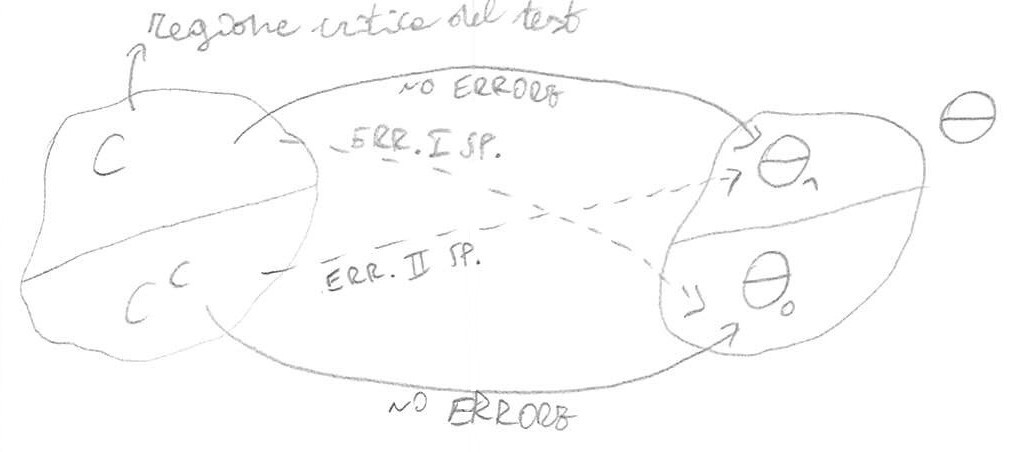 regione critica del test
NO ERRORE
Θ
C
ERR. I SP.
Θ₁
ERR. II SP.
C^C
Θ₀
NO ERRORE